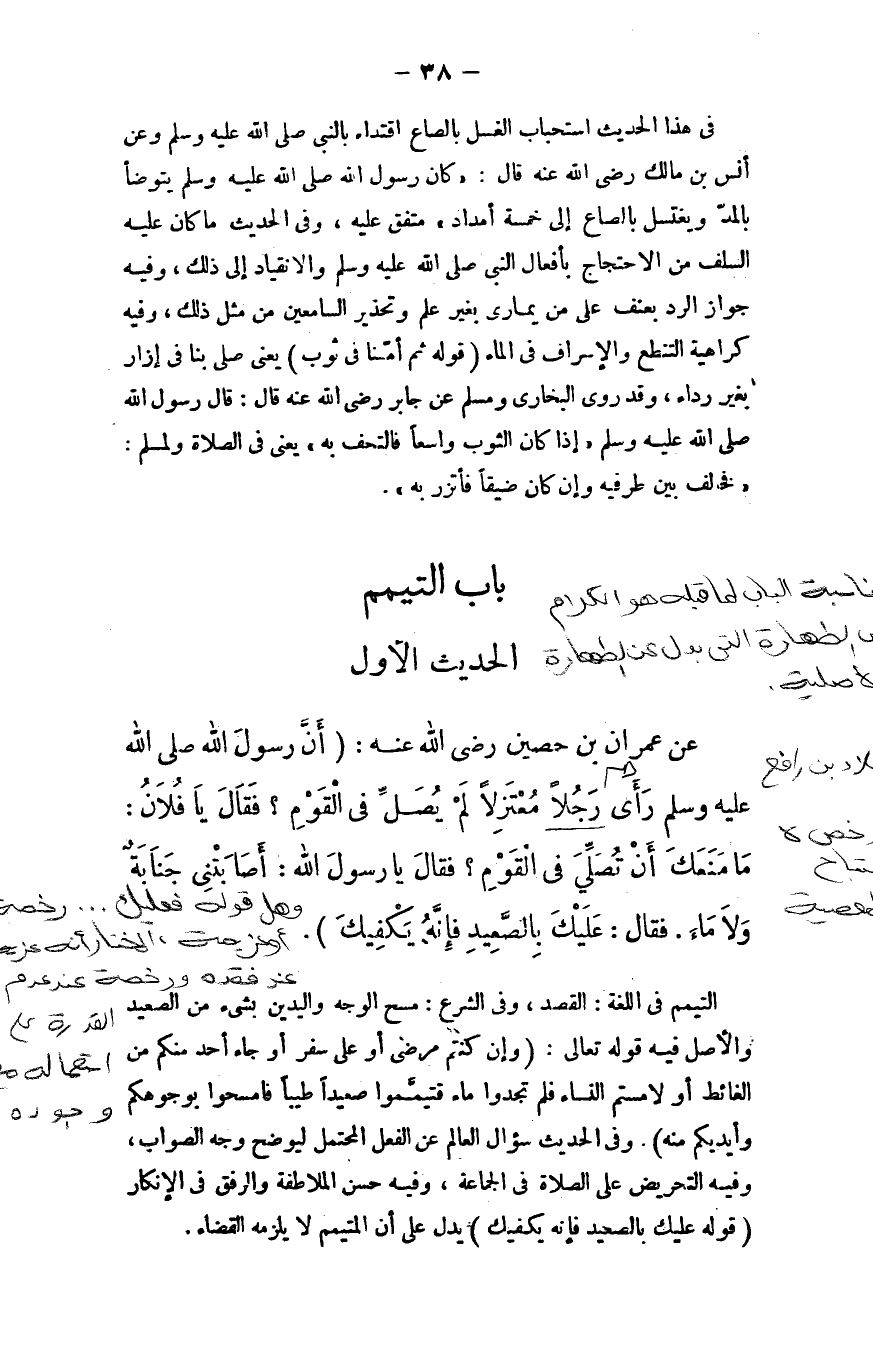 – ٣٨ –
فى هذا الحديث استحباب الغسل بالصاع اقتداء بالنبي صلى الله عليه وسلم وعن
أنس بن مالك رضى الله عنه قال : «كان رسول الله صلى الله عليه وسلم يتوضأ
بالمدّ ويغتسل بالصاع إلى خمسة أمداد» متفق عليه ، وفى الحديث ماكان عليه
السلف من الاحتجاج بأفعال النبي صلى الله عليه وسلم والانقياد إلى ذلك ، وفيه
جواز الرد بعنف على من يمارى بغير علم وتحذير السامعين من مثل ذلك ، وفيه
كراهية التنطع والإسراف فى الماء ( قوله ثم أمّنا فى ثوب ) يعنى صلى بنا فى إزار
بغير رداء ، وقد روى البخارى ومسلم عن جابر رضى الله عنه قال : قال رسول الله
صلى الله عليه وسلم «إذا كان الثوب واسعاً فالتحف به» يعنى فى الصلاة ولمسلم :
«فخالف بين طرفيه وإن كان ضيقاً فأتزر به» .
باب التيمم
ناسبة الباب لما قبله هو الكرام
الحديث الأول
الطهارة التى بدل عن الطهارة
لاصلية .
عن عمران بن حصين رضى الله عنه : ( أَنَّ رسولَ الله صلى الله
لاد بن رافع
عليه وسلم رَأَى رَجُلاً مُعْتَزِلاً لَمْ يُصَلِّ فى الْقَوْمِ ؟ فَقَالَ يا فُلَانُ :
رخص لا
مَا مَنَعَكَ أَنْ تُصَلِّيَ فى الْقَوْمِ ؟ فقالَ يا رسولَ الله : أَصَابَتْنِى جَنَابَةٌ
وهل قوله فعليك ... رخصة
وَلاَ مَاءَ . فقال : عَلَيْكَ بِالصَّعِيدِ فإِنَّهُ يَكْفِيكَ ) .
أو عزيمة ، المختار أنه عزيمة
عند فقده ورخصة عند عدم
القدرة على
استعماله مع
وجوده
التيمم فى اللغة : القصد ، وفى الشرع : مسح الوجه واليدين بشىء من الصعيد
والأصل فيه قوله تعالى : ( وإن كنتم مرضى أو على سفر أو جاء أحد منكم من
الغائط أو لامستم النساء فلم تجدوا ماء فتيمَّموا صعيداً طيباً فامسحوا بوجوهكم
وأيديكم منه ) . وفى الحديث سؤال العالم عن الفعل المحتمل ليوضح وجه الصواب ،
وفيه التحريض على الصلاة فى الجماعة ، وفيه حسن الملاطفة والرفق فى الإنكار
( قوله عليك بالصعيد فإنه يكفيك ) يدل على أن المتيمم لا يلزمه القضاء .